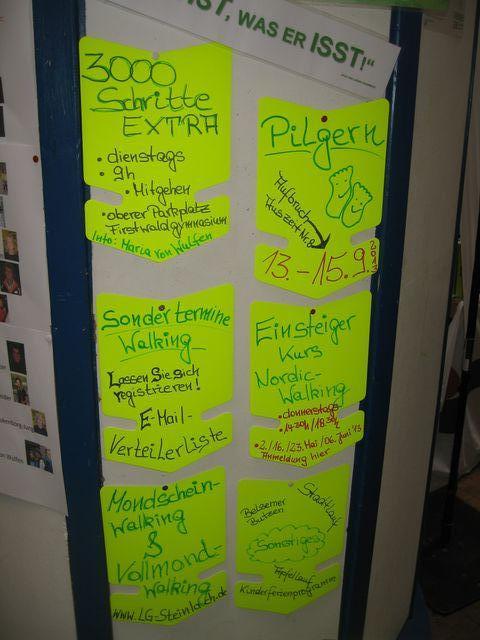 IST, WAS ER ISST!"
3000
Schritte
EXTRA
• dienstags
• 9h
• Mitgehen
• oberer Parkplatz
Firstwaldgymnasium
Info: Maria von Wulfen
Pilgern
Aufbruch
Auszeit Nr.2
13. - 15.9.
2013
Sondertermine
Walking
Lassen Sie sich
registrieren!
E-Mail-
Verteilerliste
Einsteiger
Kurs
Nordic-
Walking
• donnerstags
• 14:30h / 18:30h
• 2./16./23. Mai / 06. Juni '13
Anmeldung hier
Mondschein-
Walking
&
Vollmond-
Walking
www.LG-Steinlach.de
Stadtlauf
Belsemer
Butzen
Sonstiges
Apfellauf
Kinderferienprogramm